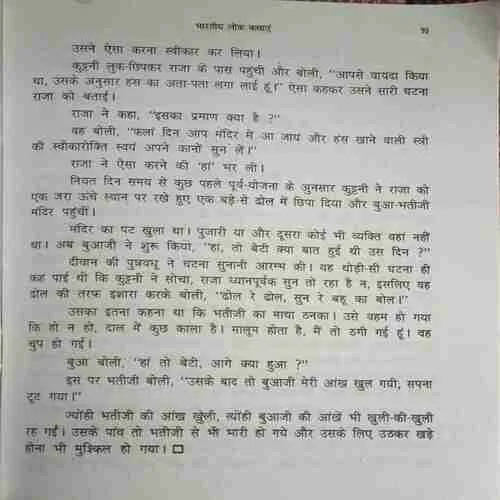 भारतीय लोक कथाएं
उसने ऐसा करना स्वीकार कर लिया।
कुट्टनी लुक-छिपकर राजा के पास पहुंची और बोली, "आपसे वायदा किया
था, उसके अनुसार हंस का अता-पता लगा लाई हूं।" ऐसा कहकर उसने सारी घटना
राजा को बताई।
राजा ने कहा, "इसका प्रमाण क्या है ?"
वह बोली, "फलां दिन आप मंदिर में आ जाय और हंस खाने वाली स्त्री
की स्वीकारोक्ति स्वयं अपने कानों सुन लें।"
राजा ने ऐसा करने की 'हां' भर ली।
नियत दिन समय से कुछ पहले पूर्व-योजना के अनुसार कुट्टनी ने राजा को
एक जरा ऊंचे स्थान पर रखे हुए एक बड़े-से ढोल में छिपा दिया और बुआ-भतीजी
मंदिर पहुंचीं।
मंदिर का पट खुला था। पुजारी या और दूसरा कोई भी व्यक्ति वहां नहीं
था। अब बुआजी ने शुरू किया, "हां, तो बेटी क्या बात हुई थी उस दिन ?"
दीवान की पुत्रवधू ने घटना सुनानी आरम्भ की। वह थोड़ी-सी घटना ही
कह पाई थी कि कुट्टनी ने सोचा, राजा ध्यानपूर्वक सुन तो रहा है न, इसलिए वह
ढोल की तरफ इशारा करके बोली, "ढोल रे ढोल, सुन रे बहू का बोल।"
उसका इतना कहना था कि भतीजी का माथा ठनका। उसे वहम हो गया
कि हो न हो, दाल में कुछ काला है। मालूम होता है, मैं तो ठगी गई हूं। वह
चुप हो गई।
बुआ बोली, "हां तो बेटी, आगे क्या हुआ ?"
इस पर भतीजी बोली, "उसके बाद तो बुआजी मेरी आंख खुल गयी, सपना
टूट गया।"
ज्योंही भतीजी की आंख खुली, त्योंही बुआजी की आंखें भी खुली-की-खुली
रह गईं। उसके पांव तो भतीजी से भी भारी हो गये और उसके लिए उठकर खड़े
होना भी मुश्किल हो गया।